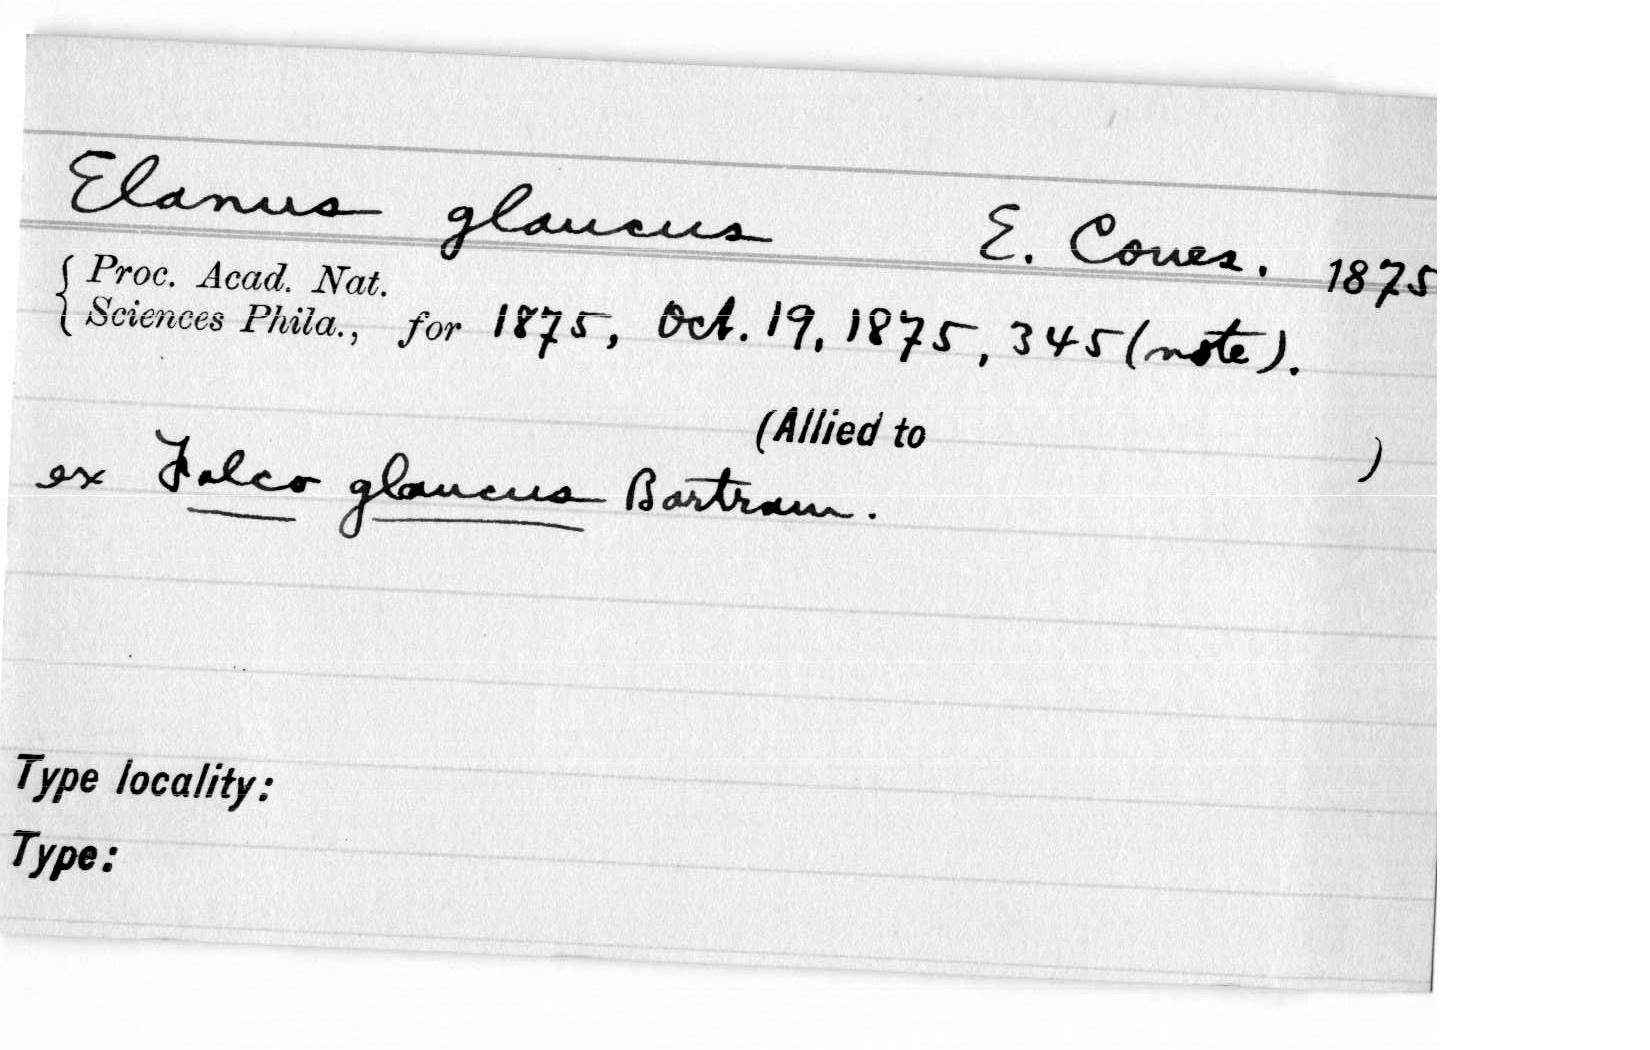 Elanus glaucus E. Coues. 1875
Proc. Acad. Nat.
Sciences Phila., for 1875, Oct. 19, 1875, 345 (note).
(Allied to )
ex Falco glaucus Bartram.
Type locality:
Type: